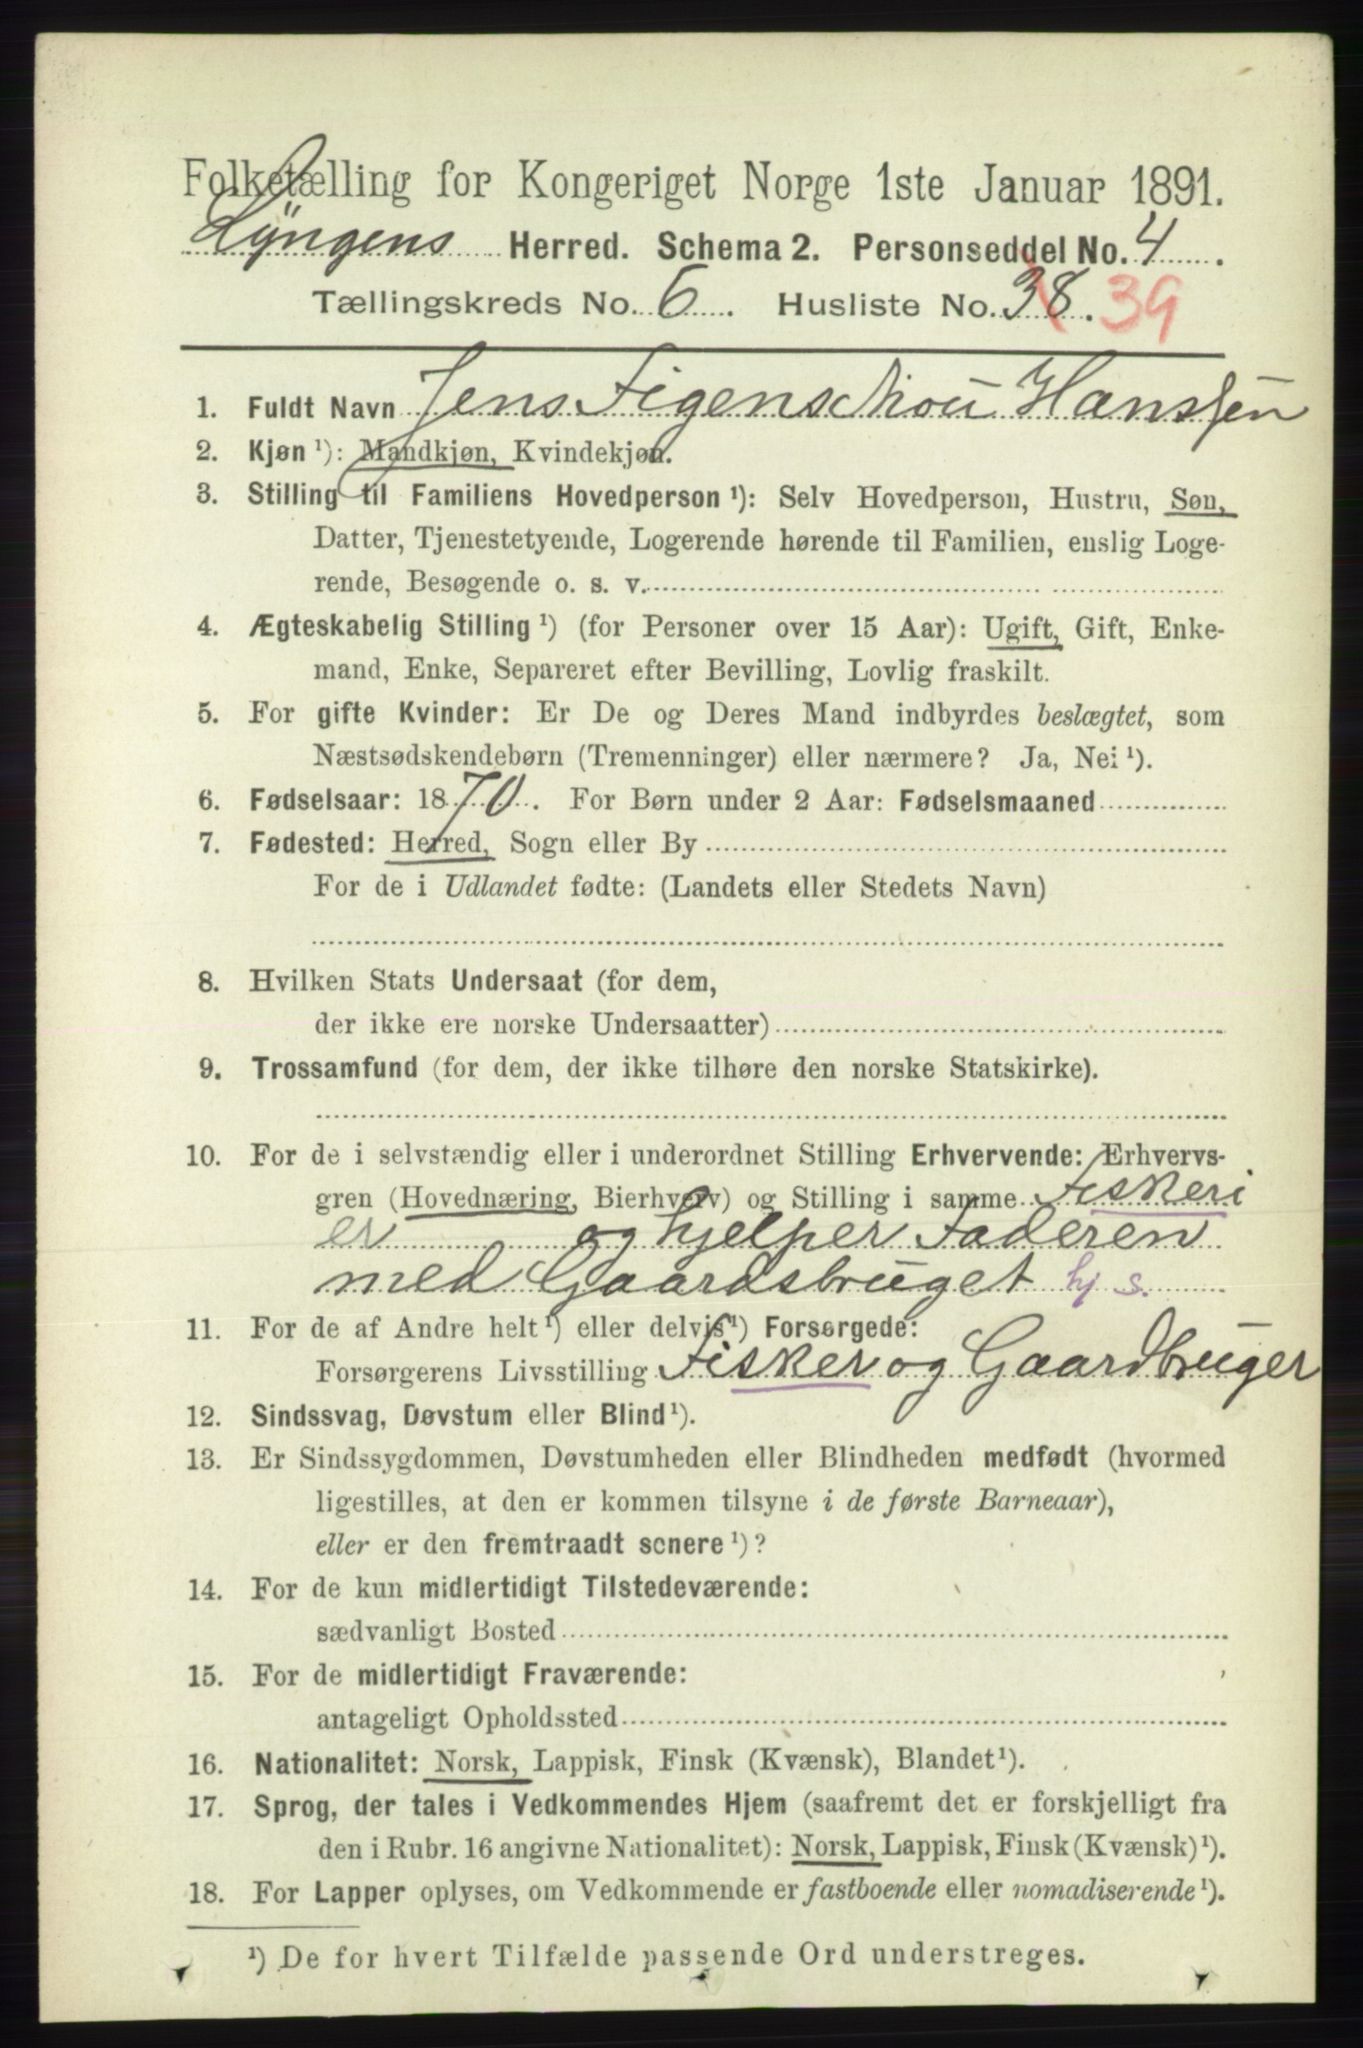 Folketælling for Kongeriget Norge 1ste Januar 1891.
Lyngens Herred. Schema 2. Personseddel No. 4.
Tællingskreds No. 6. Husliste No. 38. 39
1. Fuldt Navn Jens Figenschou Hanssen
2. Kjøn ¹): Mandkjøn, Kvindekjøn.
3. Stilling til Familiens Hovedperson ¹): Selv Hovedperson, Hustru, Søn,
Datter, Tjenestetyende, Logerende hørende til Familien, enslig Loge-
rende, Besøgende o. s. v.
4. Ægteskabelig Stilling ¹) (for Personer over 15 Aar): Ugift, Gift, Enke-
mand, Enke, Separeret efter Bevilling, Lovlig fraskilt.
5. For gifte Kvinder: Er De og Deres Mand indbyrdes beslægtet, som
Næstsødskendebørn (Tremenninger) eller nærmere? Ja, Nei ¹).
6. Fødselsaar: 1870. For Børn under 2 Aar: Fødselsmaaned
7. Fødested: Herred, Sogn eller By
For de i Udlandet fødte: (Landets eller Stedets Navn)
8. Hvilken Stats Undersaat (for dem,
der ikke ere norske Undersaatter)
9. Trossamfund (for dem, der ikke tilhøre den norske Statskirke).
10. For de i selvstændig eller i underordnet Stilling Erhvervende: Erhvervs-
gren (Hovednæring, Bierhverv) og Stilling i samme Fiskeri
er og hjelper Faderen
med Gaardsbruget hj s.
11. For de af Andre helt ¹) eller delvis ¹) Forsørgede:
Forsørgerens Livsstilling Fisker og Gaardbruger
12. Sindssvag, Døvstum eller Blind ¹).
13. Er Sindssygdommen, Døvstumheden eller Blindheden medfødt (hvormed
ligestilles, at den er kommen tilsyne i de første Barneaar),
eller er den fremtraadt senere ¹)?
14. For de kun midlertidigt Tilstedeværende:
sædvanligt Bosted
15. For de midlertidigt Fraværende:
antageligt Opholdssted
16. Nationalitet: Norsk, Lappisk, Finsk (Kvænsk), Blandet ¹).
17. Sprog, der tales i Vedkommendes Hjem (saafremt det er forskjelligt fra
den i Rubr. 16 angivne Nationalitet): Norsk, Lappisk, Finsk (Kvænsk) ¹).
18. For Lapper oplyses, om Vedkommende er fastboende eller nomadiserende ¹).
¹) De for hvert Tilfælde passende Ord understreges.